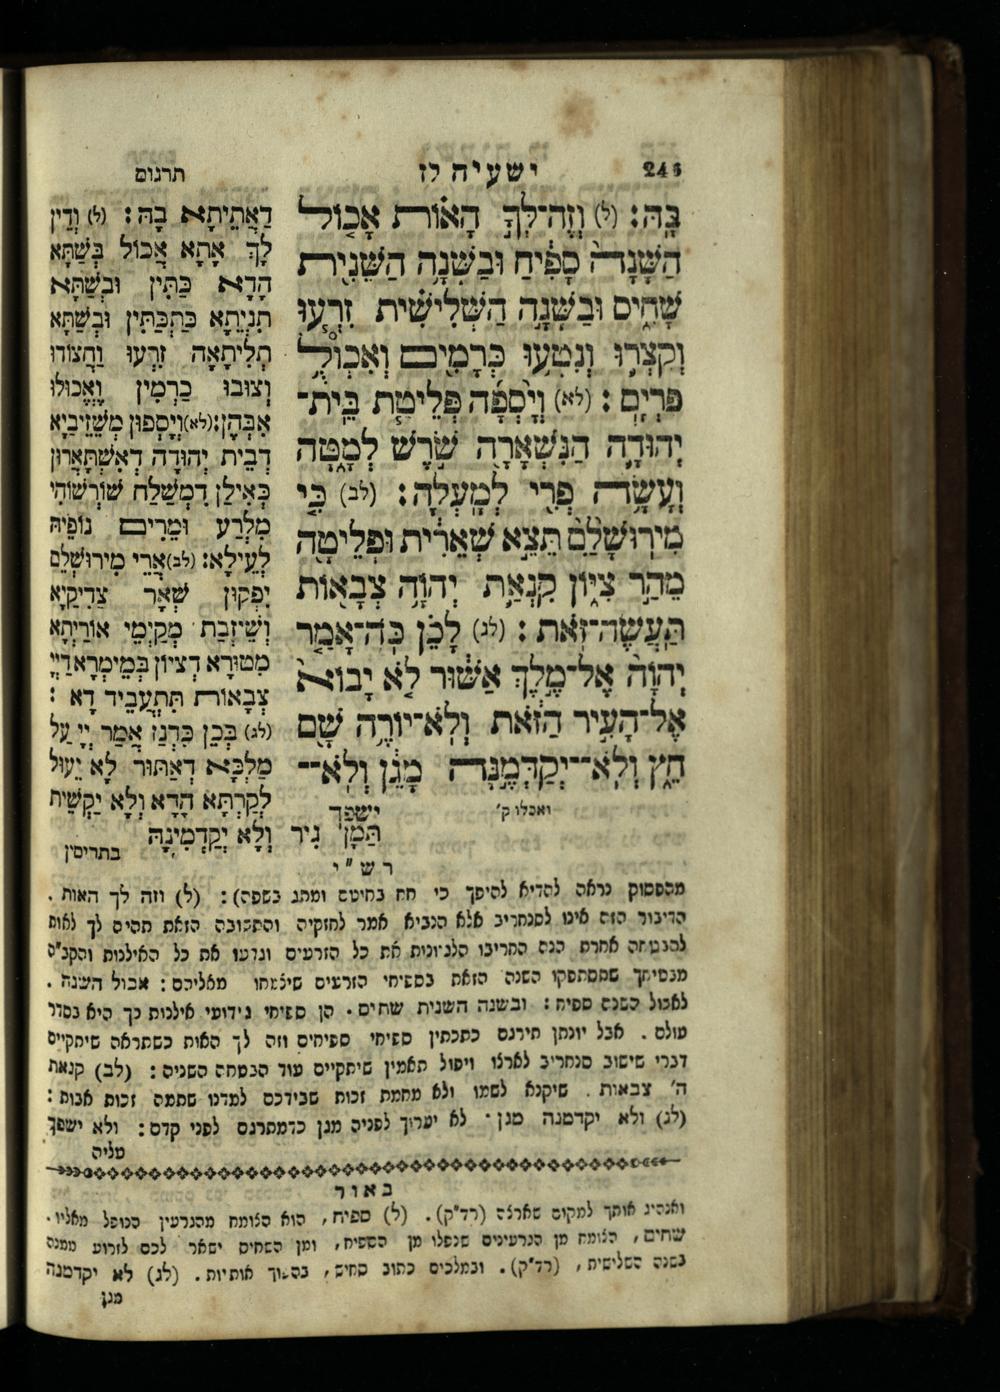 ישעיה לז
תרגום
בָּֽהּ׃ (ל) וְזֶה־לְּךָ֣ הָא֔וֹת אָכ֤וֹל
הַשָּׁנָה֙ סָפִ֔יחַ וּבַשָּׁנָ֥ה הַשֵּׁנִ֖ית
שָׁחִ֑יס וּבַשָּׁנָ֣ה הַשְּׁלִישִׁ֗ית זִרְע֧וּ
וְקִצְר֛וּ וְנִטְע֥וּ כְרָמִ֖ים וְאִכְול֥וּ
פִרְיָֽם׃ (לא) וְיָ֨סְפָ֜ה פְּלֵיטַ֧ת בֵּית־
יְהוּדָ֛ה הַנִּשְׁאָרָ֖ה שֹׁ֣רֶשׁ לְמָ֑טָּה
וְעָשָׂ֥ה פְרִ֖י לְמָֽעְלָה׃ (לב) כִּ֤י
מִירוּשָׁלִַ֙ם֙ תֵּצֵ֣א שְׁאֵרִ֔ית וּפְלֵיטָ֖ה
מֵהַ֣ר צִיּ֑וֹן קִנְאַ֛ת יְהוָ֥ה צְבָא֖וֹת
תַּֽעֲשֶׂה־זֹּֽאת׃ (לג) לָכֵ֗ן כֹּֽה־אָמַ֤ר
יְהוָה֙ אֶל־מֶ֣לֶךְ אַשּׁ֔וּר לֹ֤א יָבוֹא֙
אֶל־הָעִ֣יר הַזֹּ֔את וְלֹא־יוֹרֶ֥ה שָׁ֖ם
חֵ֑ץ וְלֹא־יְקַדְּמֶ֣נָּה מָגֵ֔ן וְלֹֽא־
ישפך
ואכלו ק׳
דַאֲתֵיתָא בָהּ׃ (ל) וְדֵין
לָךְ אָתָא אֲכוֹל בְּשַׁתָּא
הָדָא כַּתִּין וּבְשַׁתָּא
תִנְיֵתָא כַּתְכַתִּין וּבְשַׁתָּא
תְלִיתָאָה זְרָעוּ וַחֲצוֹדוּ
וְצוּבוּ כַרְמִין וֶאֱכוּלוּ
אִבְּהָן׃ (לא) וְיִסְפוּן מְשֵׁזֵיבַיָא
דְבֵית יְהוּדָה דְאִשְׁתָּאֲרוּן
כְּאִילַן דִמְשַׁלַח שׁוֹרְשׁוֹהִי
מִלְרַע וּמֵרִים נוֹפֵיהּ
לְעֵילָא׃ (לב) אֲרֵי מִירוּשְׁלֵם
יִפְקוּן שְׁאָר צַדִיקַיָא
וְשֵׁיזָבַת מְקַיְמֵי אוֹרַיְתָא
מִטוּרָא דְצִיוֹן בְּמֵימְרָא דַיְיָ
צְבָאוֹת תִּתְעֲבֵיד דָא׃
(לג) בְּכֵן כִּדְנַן אֲמַר יְיָ עַל
מַלְכָּא דְאַתּוּר לָא יֵעוּל
לְקַרְתָּא הָדָא וְלָא יַקְשִׁית
תַּמָן גִיר וְלָא יְקַדְמִינָהּ
בתריסין
רש״י
מהפסוק נראה להדיא להיפך כי חח בחיטם ומתג בשפה)׃ (ל) וזה לך האות.
הדיבור הזה אינו לסנחריב אלא הנביא אמר לחזקיה והתשובה הזאת תהיה לך לאות
להבטחה אחרת הנה החריבו הגייסות את כל הזרעים וגדעו את כל האילנות והקב״ה
מבטיחך שתסתפקו השנה הזאת בספיחי הזרעים שיצמחו מאליהם׃ אכול השנה.
לאכול השנה ספיח׃ ובשנה השנית שחיס. הן ספיחי גידועי אילנות כך היא בסדר
עולם. אבל יונתן תירגם כתכתין ספיחי ספיחים וזה לך האות כשתראה שיתקיים
דברי שישוב סנחריב לארצו ויפול תאמין שיתקיים עוד הבטחה השניה׃ (לב) קנאת
ה׳ צבאות. שיקנא לשמו ולא מחמת זכות שבידכם למדנו שתמה זכות אבות׃
(לג) ולא יקדמנה מגן. לא יערוך לפניה מגן כדמתרגם לפני קדם׃ ולא ישפך
עליה
באור
ואנהיג אותך למקום שארצה (רד״ק). (ל) ספיח, הוא הצומח מהגרעין הנופל מאליו.
שחיס, הצומח מן הגרעינים שנפלו מן הספיח, ומן השחיס ישאר לכם לזרוע ממנו
בשנה השלישית, (רד״ק). ובמלכים כתוב סחיש, בהפוך אותיות. (לג) לא יקדמנה
מגן